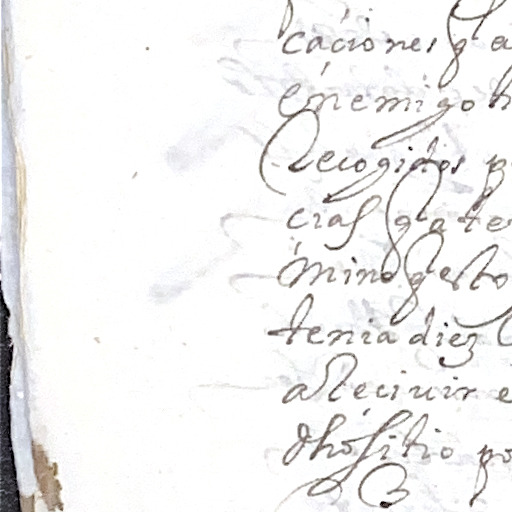 caçiones q a
enemigo
Recogidos p
cias q a te
mino q esto
tenia diez
a Reçiuir e
dho sitio po